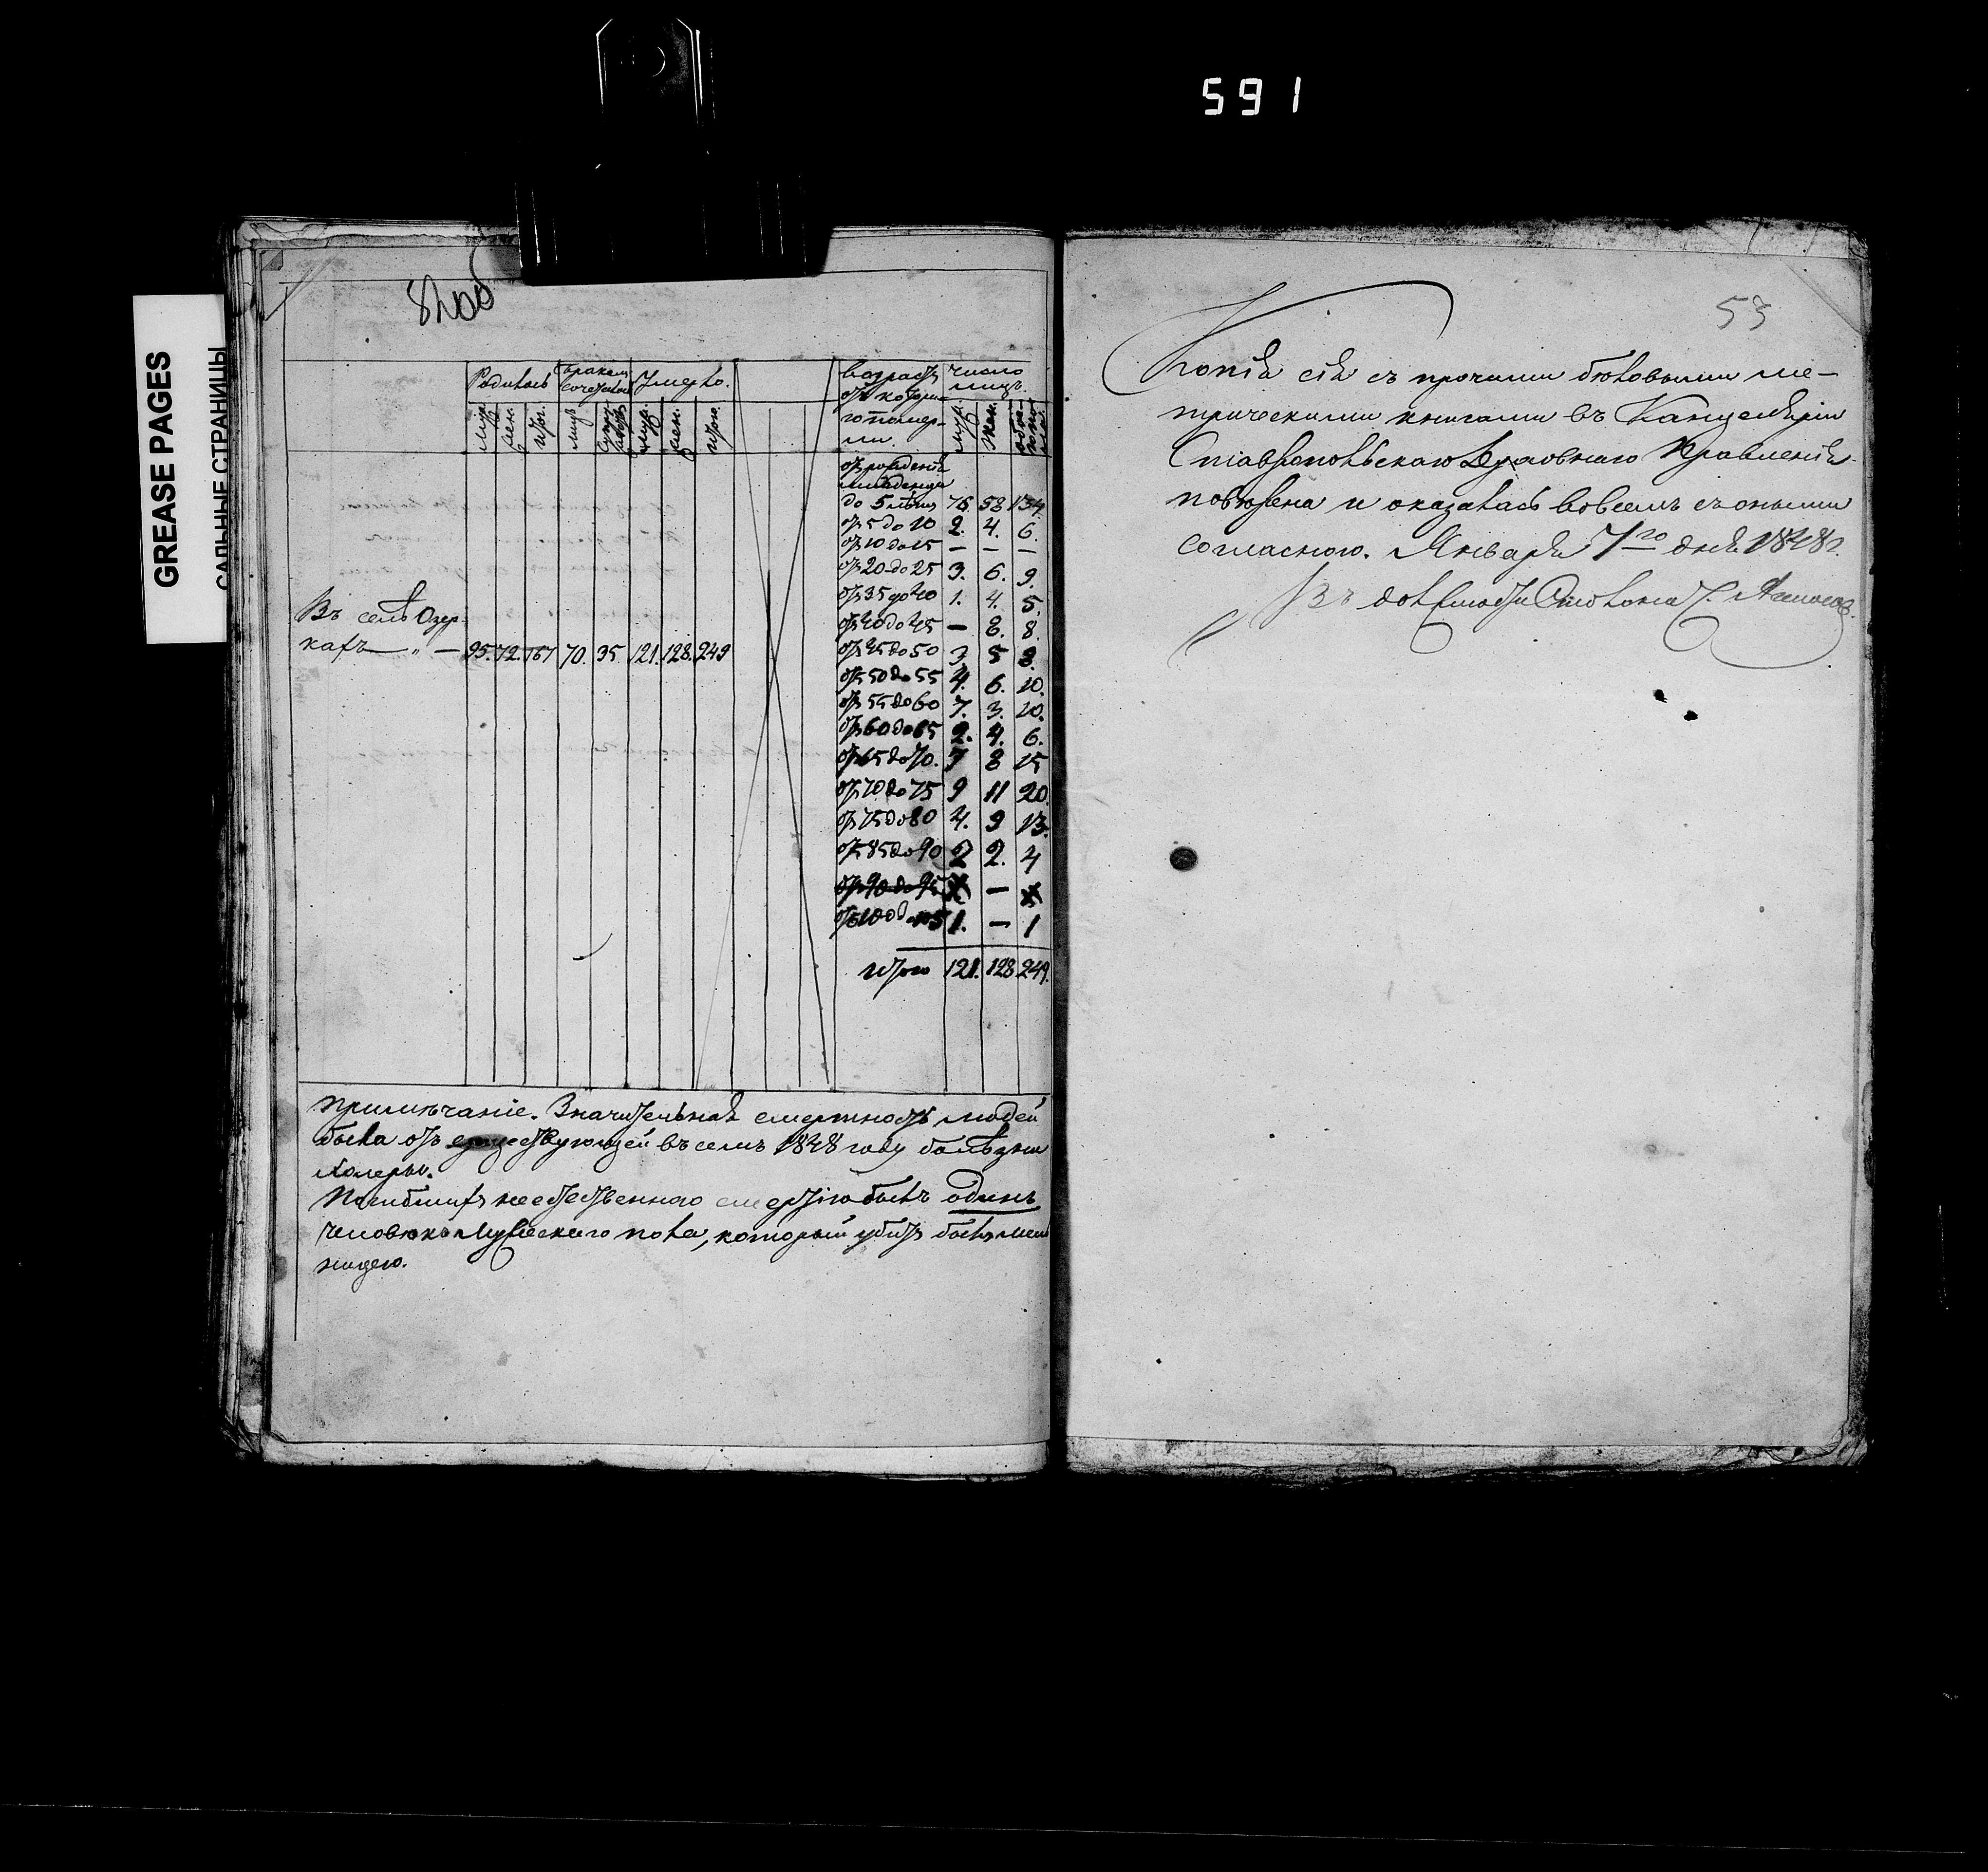 591
GREASE PAGES
САЛЬНЫЕ СТРАНИЦЫ
Родилось Бракомъ сочеталось Умерло. Возрастъ отъ котораго помер-ли. Число лицъ.
муж. жен. итог. лицъ супружествъ муж. жен. итого муж. жен. обоего пола
отъ рожденія младенца
до 5 лѣтъ 76. 58 134.
отъ 5 до 10 2. 4. 6.
отъ 10 до 15 — — —
отъ 20 до 25 3. 6. 9.
отъ 35 до 40 1. 4. 5.
отъ 40 до 45 — 8. 8.
Въ селѣ Озер-
кахъ — „ — 95. 72. 167 70. 35 121. 128. 249
отъ 45 до 50 3 5 8.
отъ 50 до 55 4. 6. 10.
отъ 55 до 60 7. 3. 10.
отъ 60 до 65 2. 4. 6.
отъ 65 до 70. 7 8 15
отъ 70 до 75 9 11 20.
отъ 75 до 80 4. 9 13.
отъ 85 до 90 2 2. 4
отъ 90 до 95 —
отъ 100 до 105 1. — 1
итого 121. 128 249.
Примѣчаніе. Значительная смертность людей
была отъ существующей въ семъ 1848 году болѣзни
холеры.
Погибшихъ неестественною смертію былъ одинъ
человѣкъ мужескаго пола, который убитъ былъ мель
ницею.
53
Копія сія съ прочими бѣловыми ме-
трическими книгами въ Канцеляріи
Ставропольскаго Духовнаго Правленія
повѣрена и оказалась вовсемъ съ оными
согласною. Января 7го дня 1848г.
Въ должности Столона